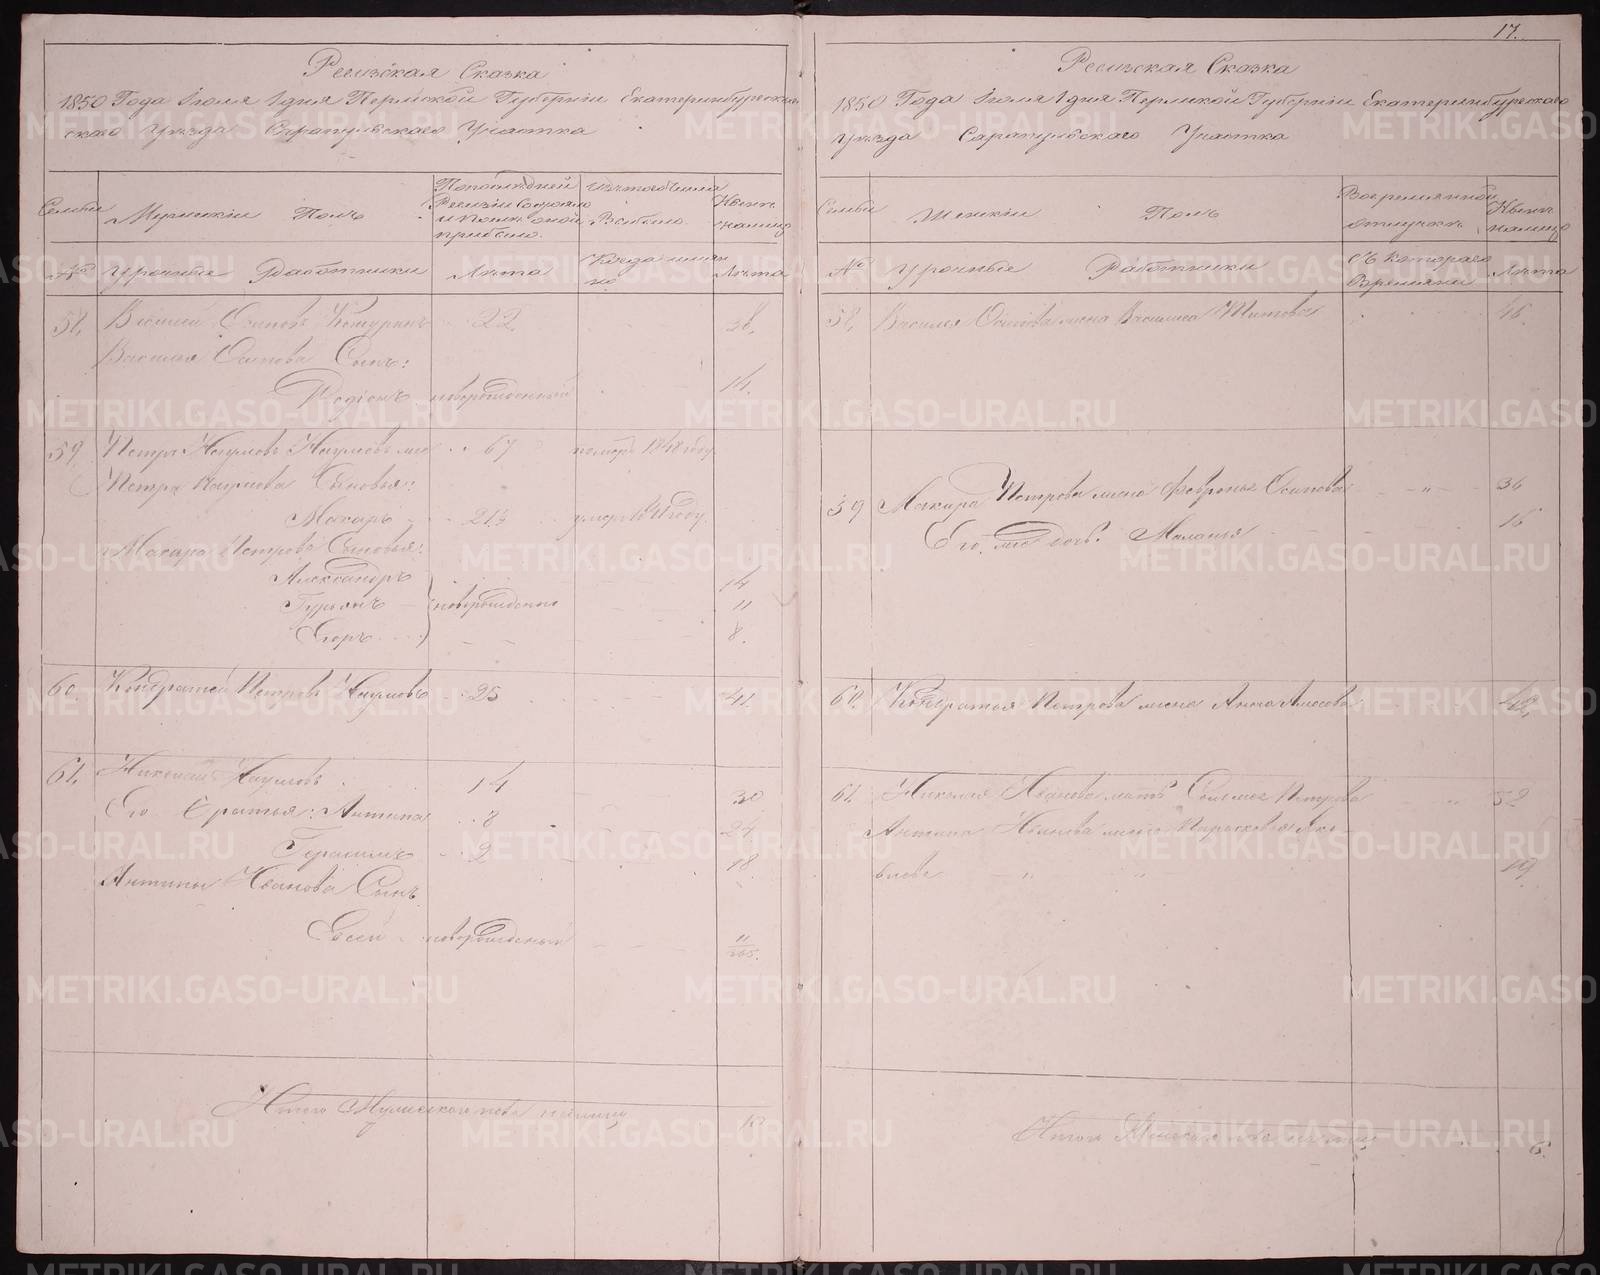 17.
Ревизская Сказка
1850 Года Июля 1 дня Пермской Губернии Екатеринбургскаго
Уезда Сарапульскаго Участка
Семьи
Мужескій Полъ
По последней Ревизіи состояло и после оной прибыло.
Изъ того числа Выбыло.
Ныне на лицо
№
Урочные Работники
Лѣта
Когда имянно
Лѣта
58.
Василий Осиповъ
22.
38.
Василья Осипова Сынъ:
Родіонъ
новорожденный
14.
59
Петръ Наумовъ
67
помер 1848 году
Петра Наумова Сыновья:
Макаръ
21½
умеръ 1841 году.
Макара Петрова Сыновья:
Александръ
14
Гурьянъ
новорожденные
11
Егоръ
8.
60.
Кондратей Петровъ Наумовъ
25
41.
61.
Николай Наумовъ
14
30
Его братья: Антипа
8
24
Герасимъ
2
18
Антипы Иванова Сынъ
Евсей
новорожденный
Итого Мужескаго пола на лицо
13
Ревизская Сказка
1850 Года Июля 1 дня Пермской Губернии Екатеринбургскаго
Уезда Сарапульскаго Участка
Семьи
Женскій Полъ
Во временной отлучке
Ныне на лицо
№
Урочные Работники
Съ котораго Времени
Лѣта
58.
Василья Осипова жена Василиса Титова
46.
59
Макара Петрова жена Февронья Осипова
36
Его же дочь: Меланья
16
60.
Кондратья Петрова жена Анна
42.
61.
Николая Иванова мать Петрова
52
Антипа Иванова жена Парасковья Яко-
влева
19
Итого Женскаго пола на лицо
6.
METRIKI.GASO-URAL.RU